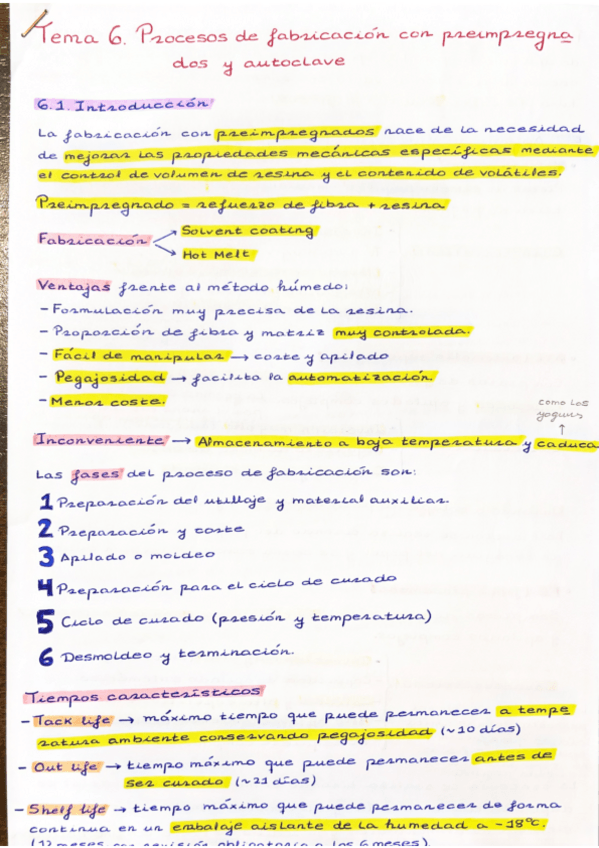 Tema 6. Procesos de fabricación con preimpregna
dos y autoclave
6.1. Introducción
La fabricación con preimpregnados nace de la necesidad
de mejorar las propiedades mecánicas específicas mediante
el control de volumen de resina y el contenido de volátiles.
Preimpregnado = refuerzo de fibra + resina
Fabricación → Solvent coating
→ Hot Melt
Ventajas frente al método húmedo:
- Formulación muy precisa de la resina.
- Proporción de fibra y matriz muy controlada.
- Fácil de manipular → corte y apilado
- Pegajosidad → facilita la automatización.
- Menor coste.
como los
yogures
↑
Inconveniente → Almacenamiento a baja temperatura y caduca
Las fases del proceso de fabricación son:
1 Preparación del utillaje y material auxiliar.
2 Preparación y corte
3 Apilado o moldeo
4 Preparación para el ciclo de curado
5 Ciclo de curado (presión y temperatura)
6 Desmoldeo y terminación.
Tiempos característicos
- Tack life → máximo tiempo que puede permanecer a tempe
ratura ambiente conservando pegajosidad (~10 días)
- Out life → tiempo máximo que puede permanecer antes de
ser curado (~21 días)
- Shelf life → tiempo máximo que puede permanecer de forma
continua en un embalaje aislante de la humedad a -18ºC.
(12 meses con revisión obligatoria a los 6 meses).